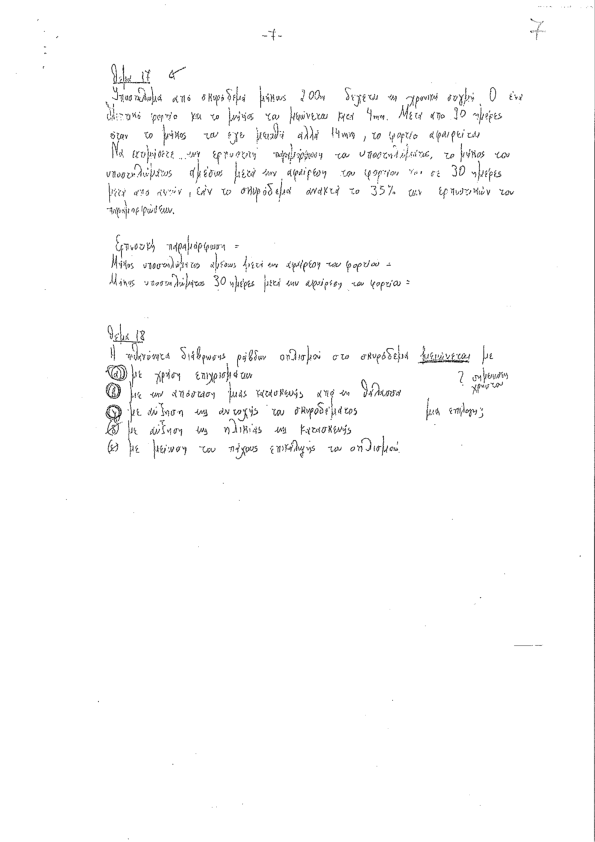 -7-
7
Θέμα 17
Υποστύλωμα από σκυρόδεμα μήκους 200m δέχεται τη χρονική στιγμή 0 ένα
θλιπτικό φορτίο και το μήκος του μειώνεται κατά 4mm. Μετά από 30 ημέρες
όταν το μήκος του έχει μειωθεί άλλα 14mm, το φορτίο αφαιρείται
Να εκτιμήσετε την ερπυστική παραμόρφωση του υποστυλώματος, το μήκος του
υποστυλώματος αμέσως μετά την αφαίρεση του φορτίου και σε 30 ημέρες
μετά από αυτήν, εάν το σκυρόδεμα ανακτά το 35% των ερπυστικών του
παραμορφώσεων.
Ερπυστική παραμόρφωση =
Μήκος υποστυλώματος αμέσως μετά την αφαίρεση του φορτίου =
Μήκος υποστυλώματος 30 ημέρες μετά την αφαίρεση του φορτίου =
Θέμα 18
Η πιθανότητα διάβρωσης ράβδων οπλισμού στο σκυρόδεμα μειώνεται με
(α) με χρήση επιχρισμάτων
? σημείωση χρήστου
(β) με την απόσταση μιας κατασκευής από τη θάλασσα
(γ) με αύξηση της αντοχής του σκυροδέματος
μια επιλογή;
(δ) με αύξηση της ηλικίας της κατασκευής
(ε) με μείωση του πάχους επικάλυψης του οπλισμού.